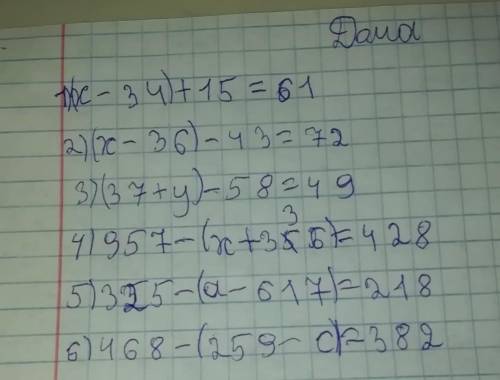 Дома
1)(x - 34) + 15 = 61
2)(x - 36) - 43 = 72
3)(37 + y) - 58 = 49
4)957 - (x + 336) = 428
5)325 - (a - 617) = 218
6)468 - (259 - c) = 382